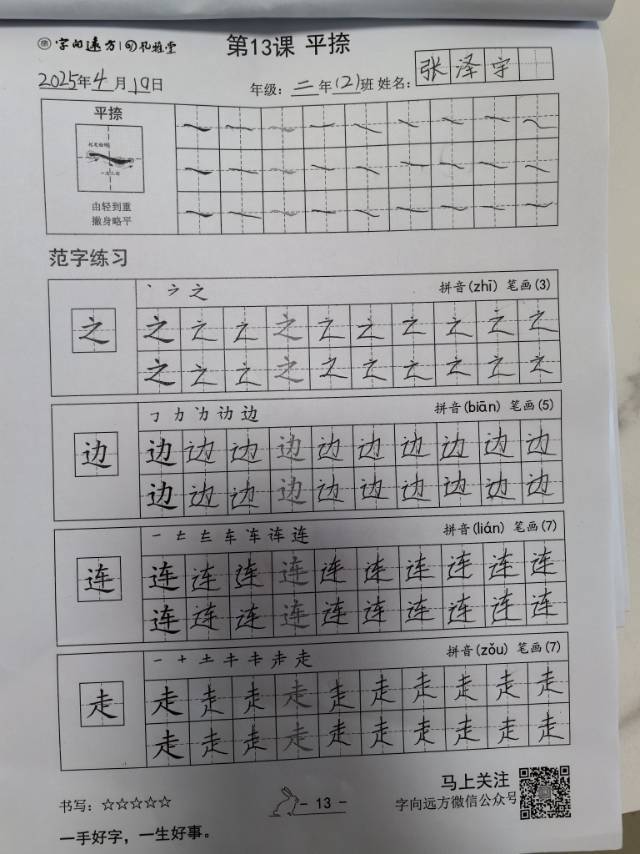 字向远方 孔雅堂
第13课 平捺
2025年4月10日 年级：二年(2)班 姓名：张泽宇
平捺
由轻到重
撇身略平
范字练习
丶 ㇇ 之 拼音(zhī) 笔画(3)
之 之 之 之 之 之 之 之 之 之 之
之 之 之 之 之 之 之 之 之 之
㇆ 力 边 拼音(biān) 笔画(5)
边 边 边 边 边 边 边 边 边 边 边
边 边 边 边 边 边 边 边 边 边
一 车 连 连 拼音(lián) 笔画(7)
连 连 连 连 连 连 连 连 连 连 连
连 连 连 连 连 连 连 连 连 连
一 十 土 走 拼音(zǒu) 笔画(7)
走 走 走 走 走 走 走 走 走 走 走
走 走 走 走 走 走 走 走 走 走
书写：☆☆☆☆☆ - 13 - 马上关注
字向远方微信公众号
一手好字，一生好事。